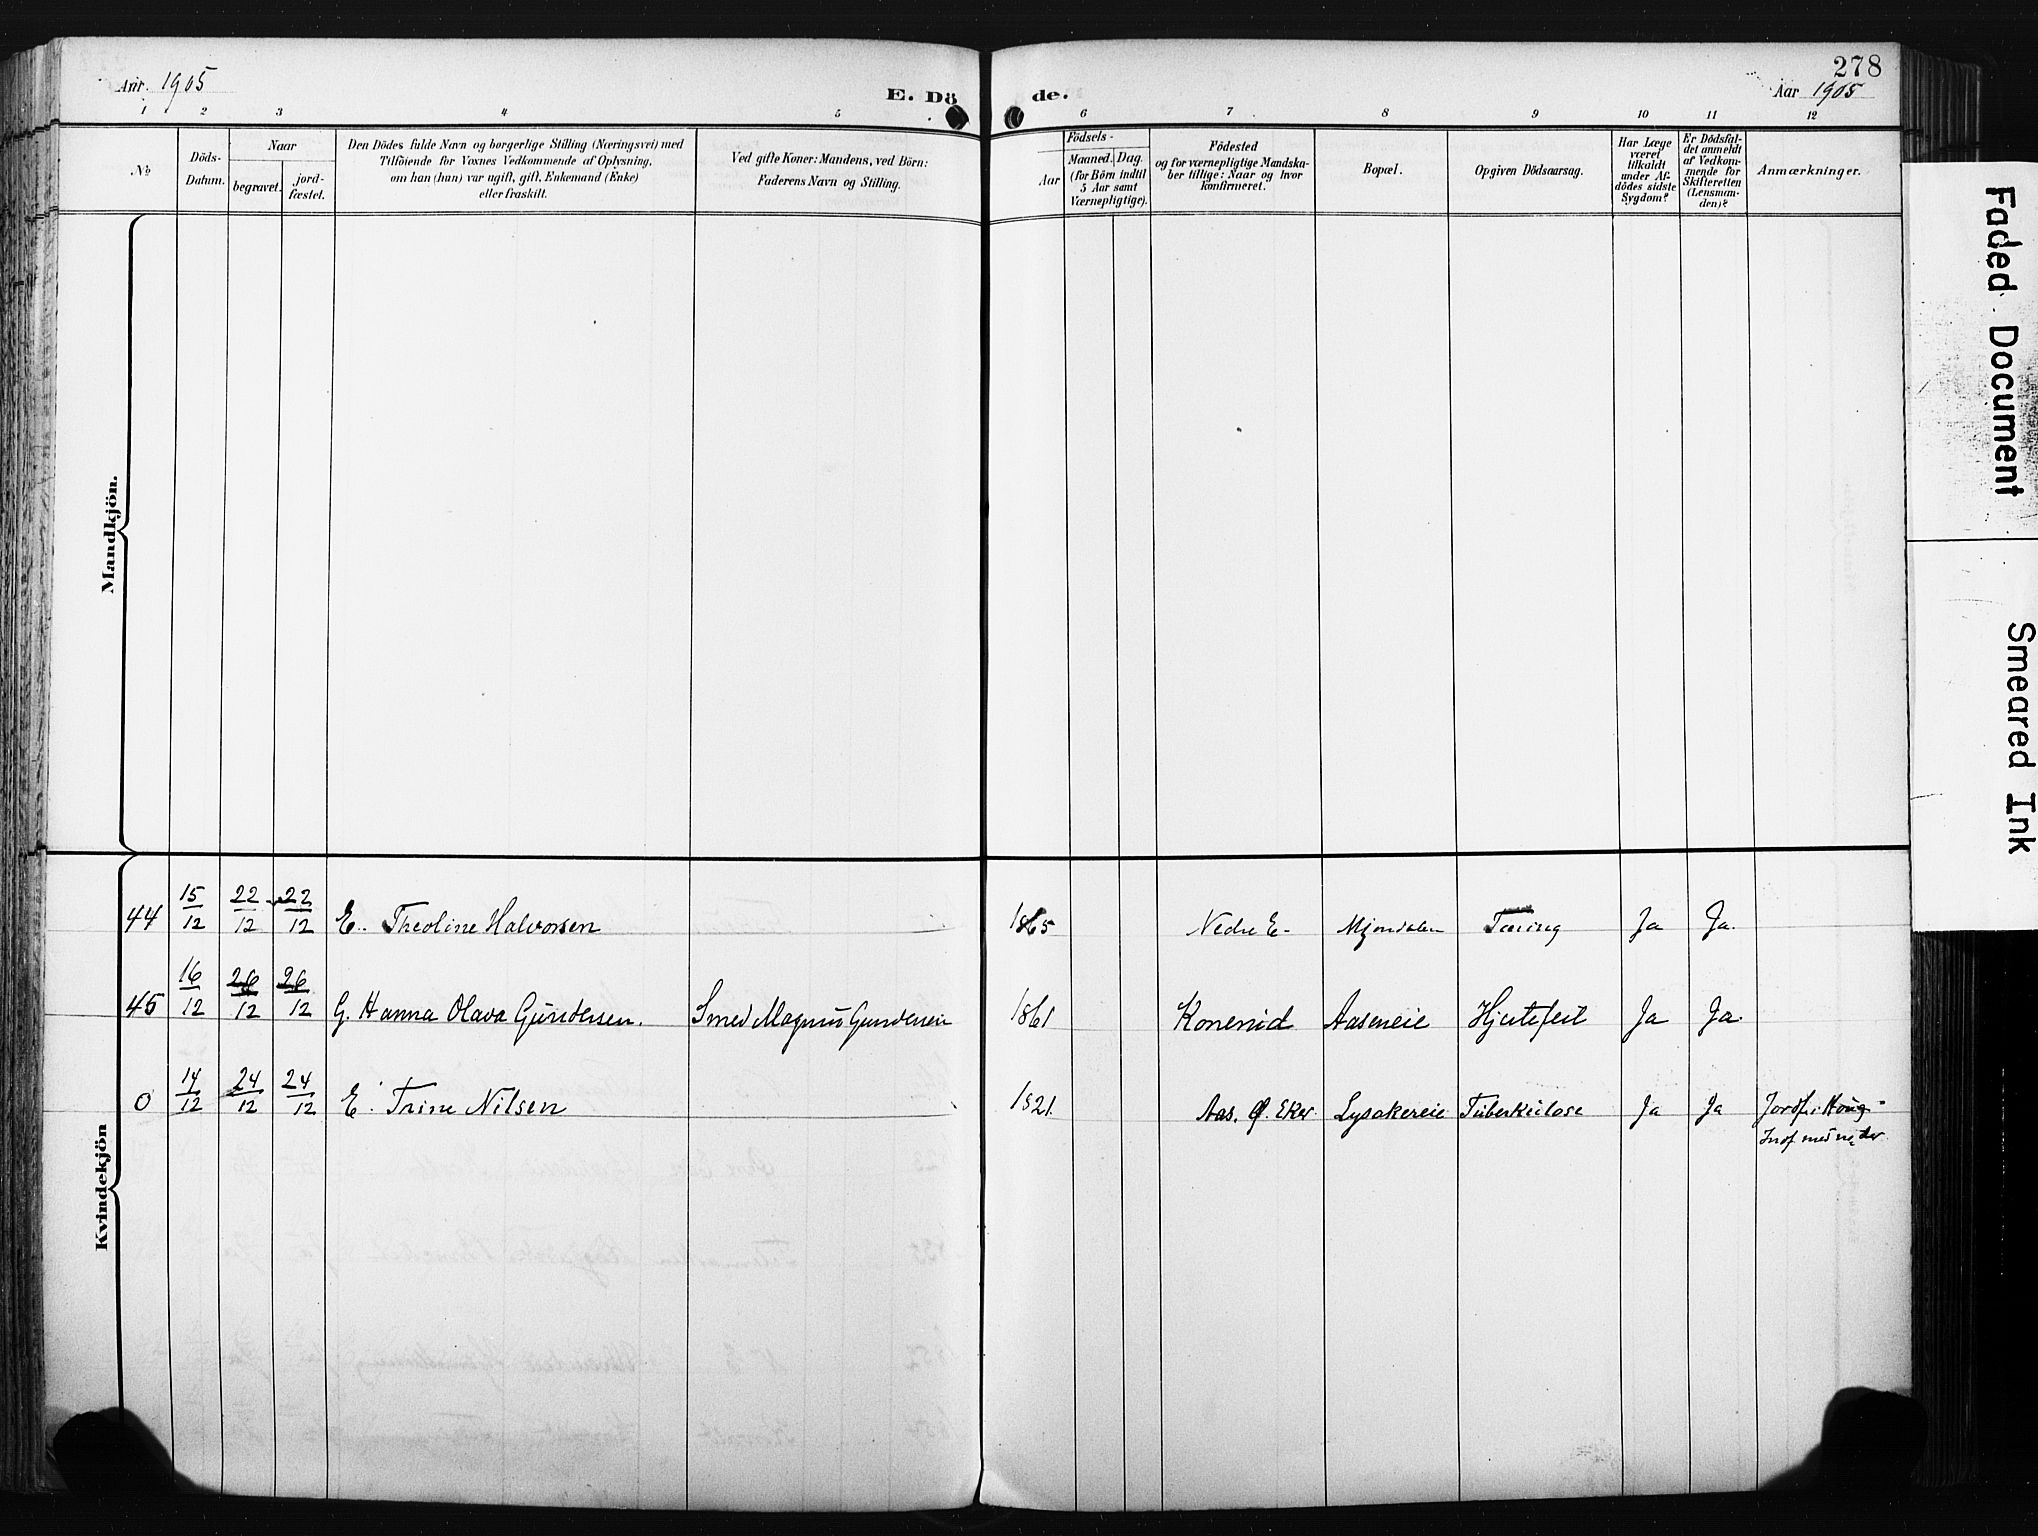 278
Aar 1905
E. Döde.
Aar 1905
1 2 3 4 5 6 7 8 9 10 11 12
No
Döds-Datum.
Naar
begravet.
jord-fæstet.
Den Dödes fulde Navn og borgerlige Stilling (Næringsvei) med
Tilföiende for Voxnes Vedkommende af Oplysning,
om han (hun) var ugift, gift, Enkemand (Enke)
eller fraskilt.
Ved gifte Koner: Mandens, ved Börn:
Faderens Navn og Stilling.
Födsels-
Aar
Maaned. Dag.
(for Börn indtil
5 Aar samt
Værnepligtige).
Födested
og for værnepligtige Mandska-
ber tillige: Naar og hvor
konfirmeret.
Bopæl.
Opgiven Dödsaarsag.
Har Læge
været
tilkaldt
under Af-
dödes sidste
Sygdom?
Er Dödsfal-
det anmeldt
af Vedkom-
mende for
Skifteretten
(Lensman-
den)?
Anmærkninger.
Mandkjön.
Kvindekjön
44 15/12 22/12 22/12 E. Theoline Halvorsen 1865 Nedre E- Mjøndalen Tæring Ja Ja.
45 16/12 26/12 26/12 G. Hanna Olava Gundersen. Smed Magnus Gundersen 1861 Konerud Aaseneie Hjertefeil Ja Ja.
0 14/12 24/12 24/12 E. Trine Nilsen 1821. Aas. Ø. Eker Lysakereie Tuberkulose Ja Ja Jordf. i Houg-
Faded Document
Smeared Ink